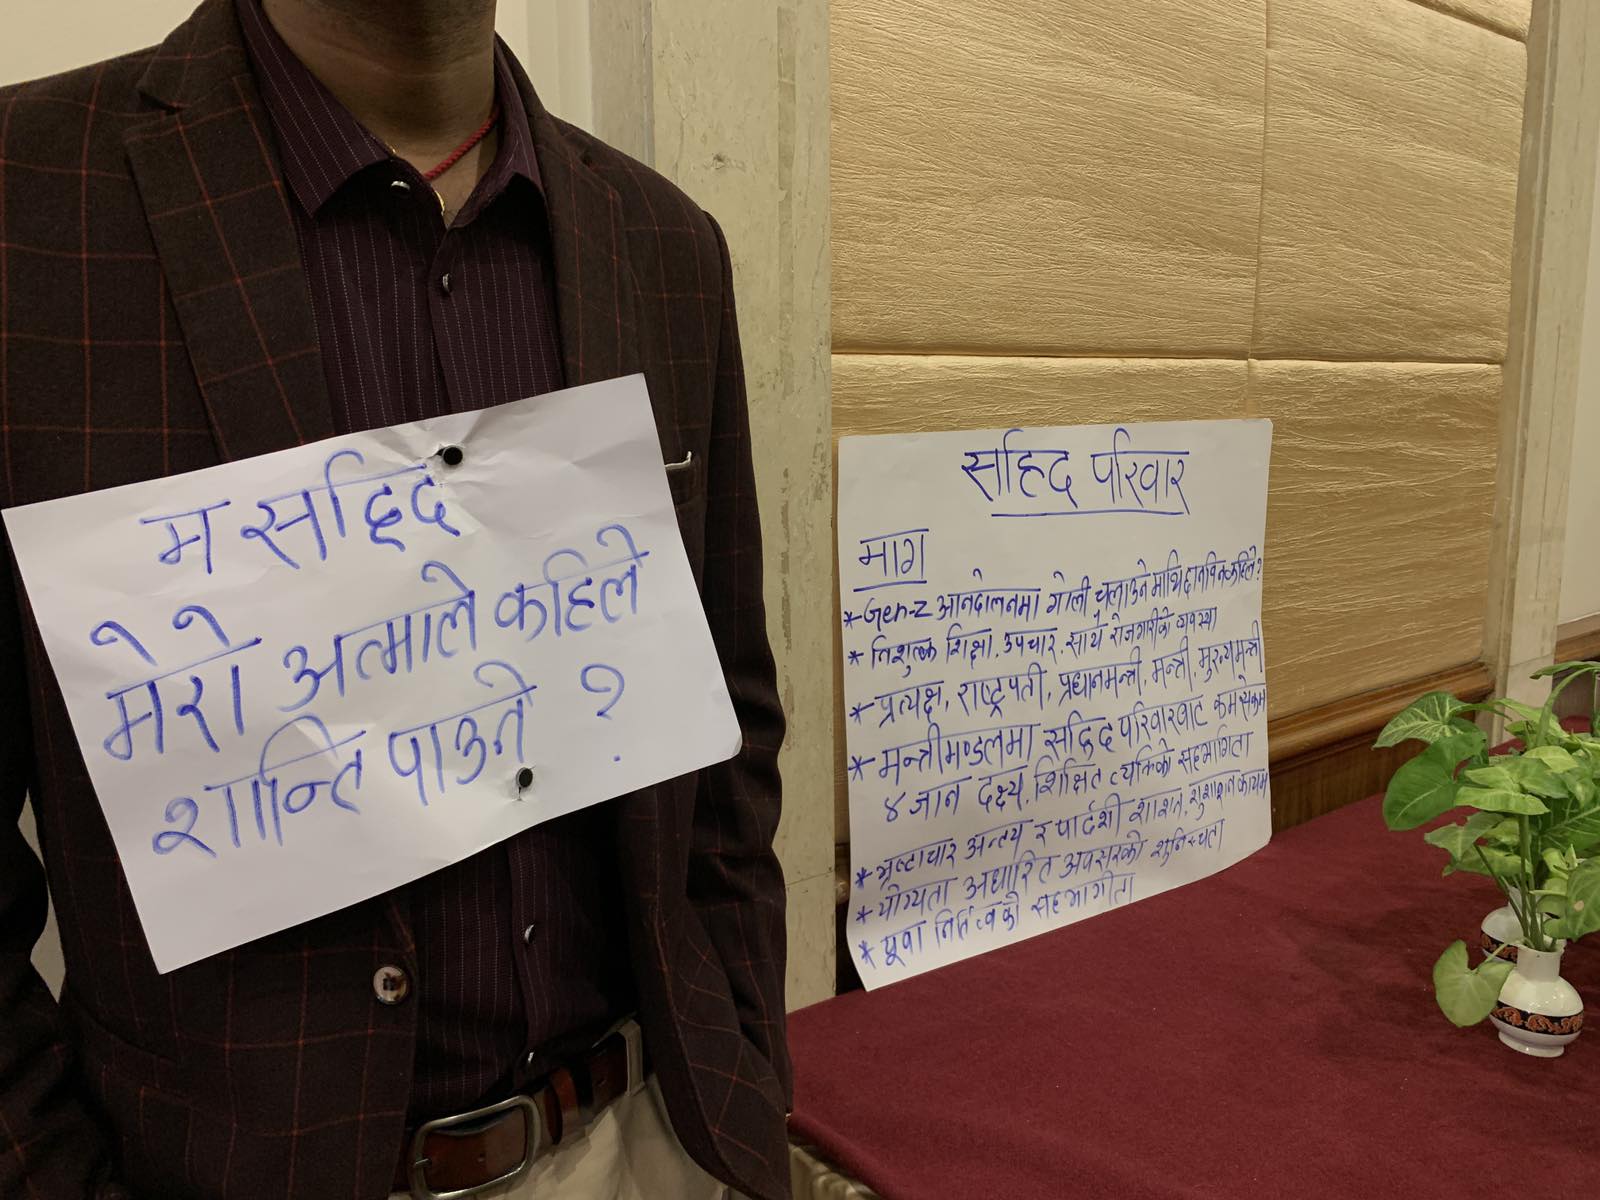 म सहिद
मेरो अत्माले कहिले
शान्ति पाउने ?
सहिद परिवार
माग
* Gen-Z आनदोलनमा गोली चलाउने माथि कहिले?
* निशुल्क शिक्षा, उपचार, साथै रोजगारीको व्यवस्था
* प्रत्यक्ष, राष्ट्रपती, प्रधानमन्त्री, मन्त्री, मुख्यमन्त्री
* मन्त्रीमण्डलमा सहिद परिवारबाट कमसेकम
४ जान दक्ष्य, शिक्षित व्यक्तिको सहभागिता
* भ्रष्टाचार अन्त्य र पार्दशी शाशन, शुशाशन कायम
* योग्यता अधारित अवसरको शुनिस्चता
* यूवा को सहभागीता